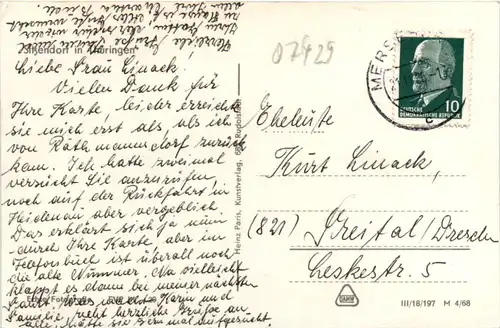 Ziegendorf in Thüringen
Liebe Frau Linack.
Vielen Dank für
Ihre Karte, leider erreichte
sie mich erst als, als ich
von Rathmannsdorf zurück
kam. Ich hatte zweimal
versucht Sie anzurufen,
noch auf der Rückfahrt in
Heidenau aber vergeblich
Das erklärt sich ja nun
durch Ihre Karte, aber im
Telefonbuch ist überall noch
die alte Nummer. Na vielleicht
klappt es dann bei meiner nächsten
Fahrt. Was macht Karin und
Familie, recht herzliche Grüße an
alle, hätte sie gern mal aufgesucht.
Heinz Paris, Kunstverlag, 682 Rudolstadt
07429
MERSE
DEUTSCHE
DEMOKRATISCHE REPUBLIK
10
Eheleute
Kurt Linack,
(821) Freital/Dresden
Leskestr. 5
III/18/197 M 4/68